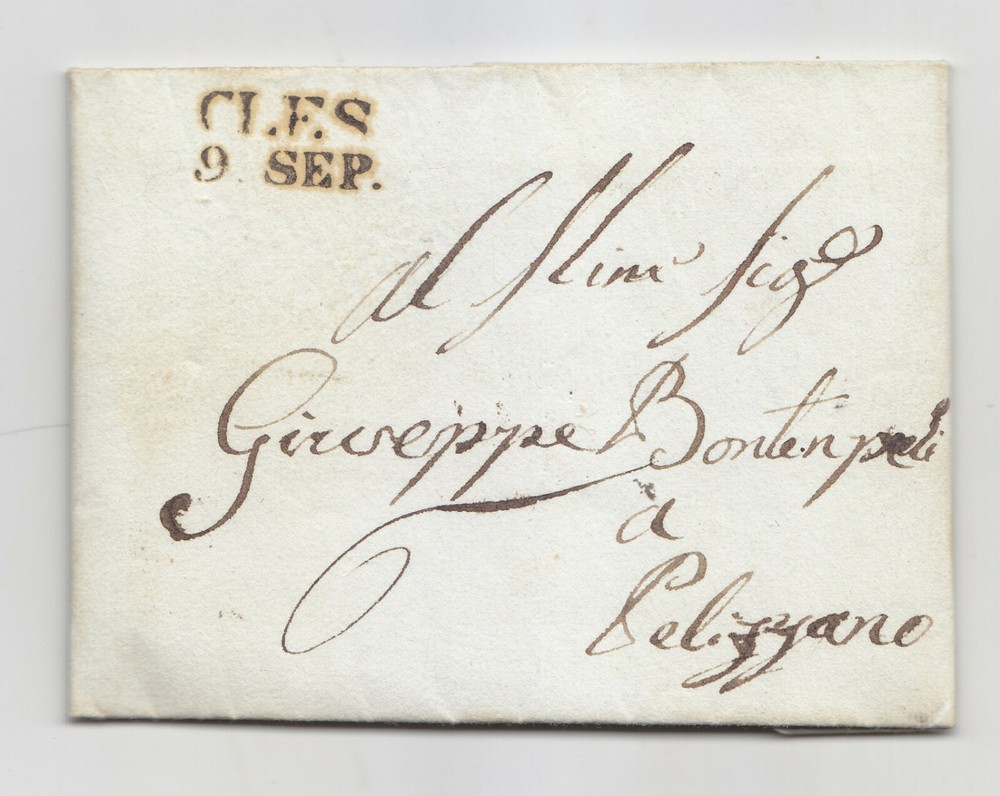 CLES
9 SEP.
al Stim.º Sigr
Giuseppe Bontenpeli
a
Pelizzano